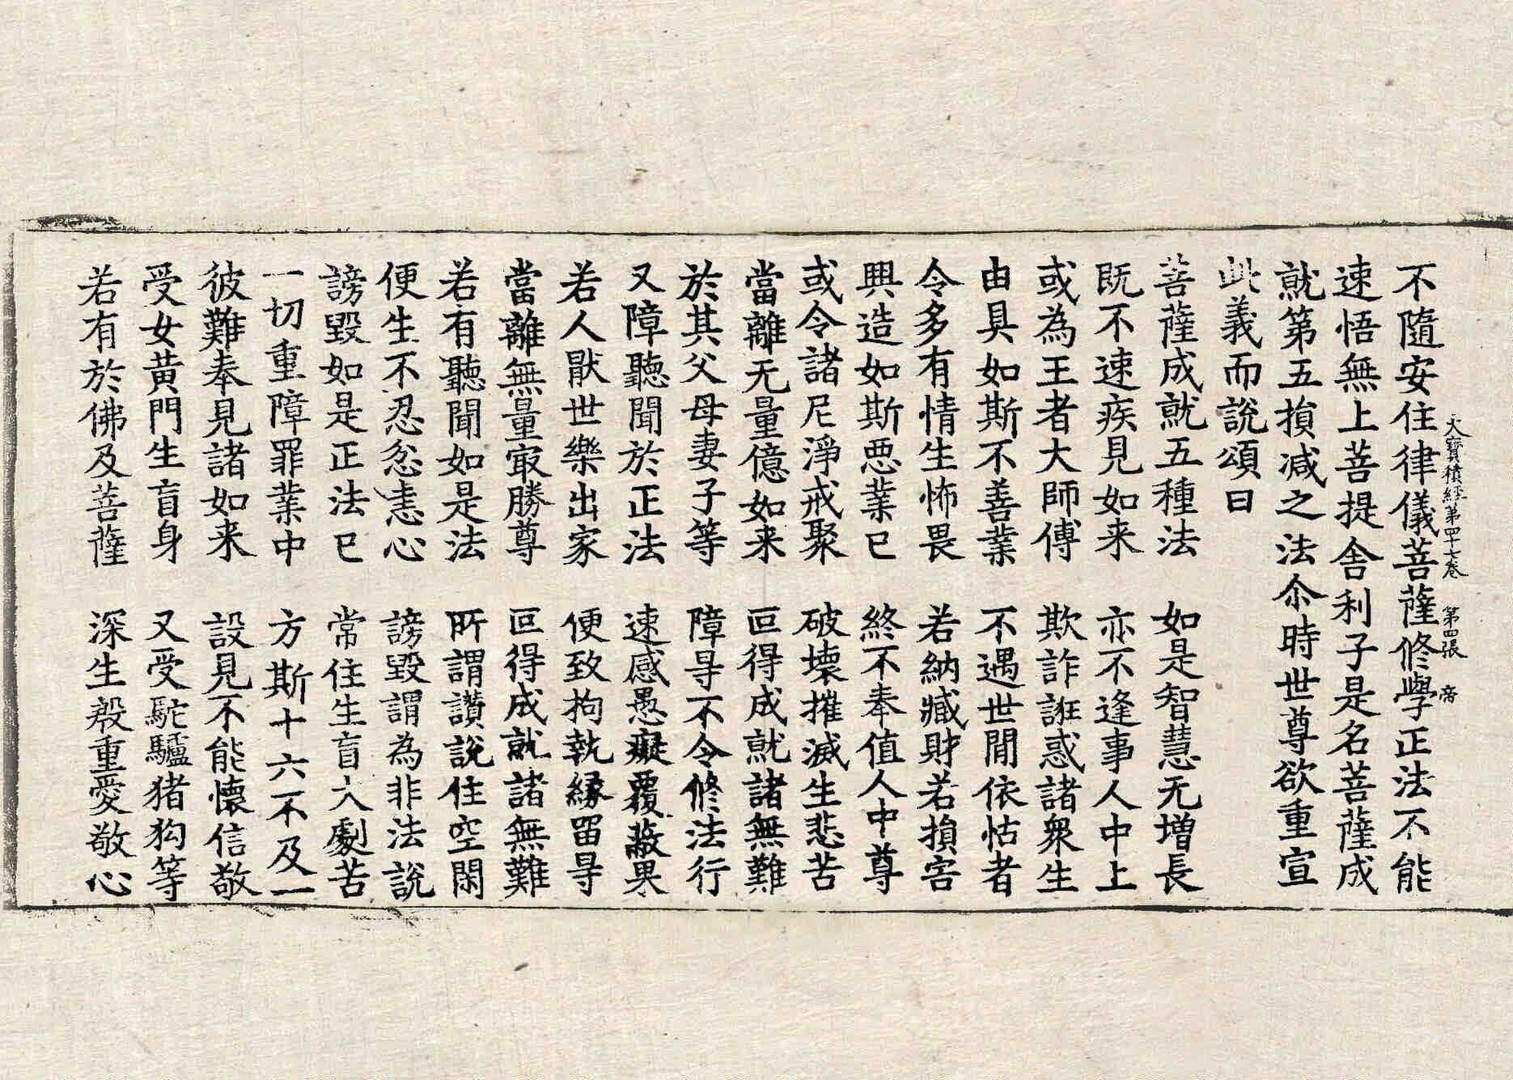 大寶積經第四十七卷　第四張　帝
不隨安住律儀菩薩修學正法不能
速悟無上菩提舍利子是名菩薩成
就第五損减之法尒時世尊欲重宣
此義而說頌曰
菩薩成就五種法　如是智慧无增長
既不速疾見如来　亦不逢事人中上
或為王者大師傅　欺詐誑惑諸衆生
由具如斯不善業　不遇世間依怙者
令多有情生怖畏　若納臧財若損害
興造如斯惡業已　終不奉值人中尊
或令諸尼淨戒聚　破壞摧滅生悲苦
當離无量億如来　叵得成就諸無難
於其父母妻子等　障㝵不令修法行
又障聽聞於正法　速感愚癡覆蔽果
若人猒世樂出家　便致拘執緣留㝵
當離無量㝡勝尊　叵得成就諸無難
若有聽聞如是法　所謂讃說住空閑
便生不忍忿恚心　謗毀謂為非法說
謗毀如是正法已　常住生盲大劇苦
一切重障罪業中　方斯十六不及一
彼難奉見諸如来　設見不能懷信敬
受女黃門生盲身　又受駝驢猪狗等
若有於佛及菩薩　深生殷重愛敬心